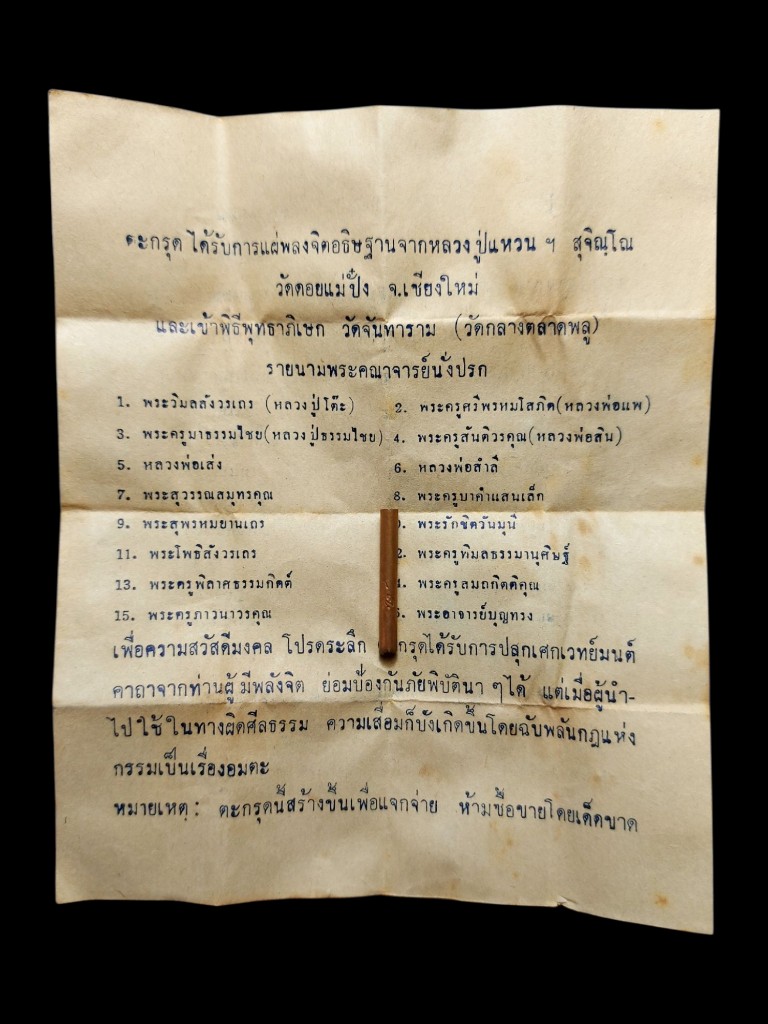 ตะกรุด ได้รับการแผ่พลงจิตอธิษฐานจากหลวงปู่แหวน ฯ สุจิณฺโณ
วัดดอยแม่ปั๋ง จ.เชียงใหม่
และเข้าพิธีพุทธาภิเษก วัดจันทาราม (วัดกลางตลาดพลู)
รายนามพระคณาจารย์นั่งปรก
1. พระวิมลสังวรเถร (หลวงปู่โต๊ะ) 2. พระครูศรีพรหมโสภิต(หลวงพ่อแพ)
3. พระครูมาธรรมไชย(หลวงปู่ธรรมไชย) 4. พระครูสันติวรคุณ(หลวงพ่อสิน)
5. หลวงพ่อเส่ง 6. หลวงพ่อสำลี
7. พระสุวรรณสมุทรคุณ 8. พระครูบาคำแสนเล็ก
9. พระสุพรหมยานเถร 0. พระรักขิตวันมุนี
11. พระโพธิสังวรเถร 2. พระครูพิมลธรรมานุศิษฐ์
13. พระครูพิลาศธรรมกิตติ์ 4. พระครูสมถกิตติคุณ
15. พระครูภาวนาวรคุณ พระอาจารย์บุญทรง
เพื่อความสวัสดีมงคล โปรดระลึก กรุดได้รับการปลุกเศกเวทย์มนต์
คาถาจากท่านผู้มีพลังจิต ย่อมป้องกันภัยพิบัตินา ๆ ได้ แต่เมื่อผู้นำ-
ไปใช้ในทางผิดศีลธรรม ความเสื่อมก็บังเกิดขึ้นโดยฉับพลันกฎแห่ง
กรรมเป็นเรื่องอมตะ
หมายเหตุ: ตะกรุดนี้สร้างขึ้นเพื่อแจกจ่าย ห้ามซื้อขายโดยเด็ดขาด